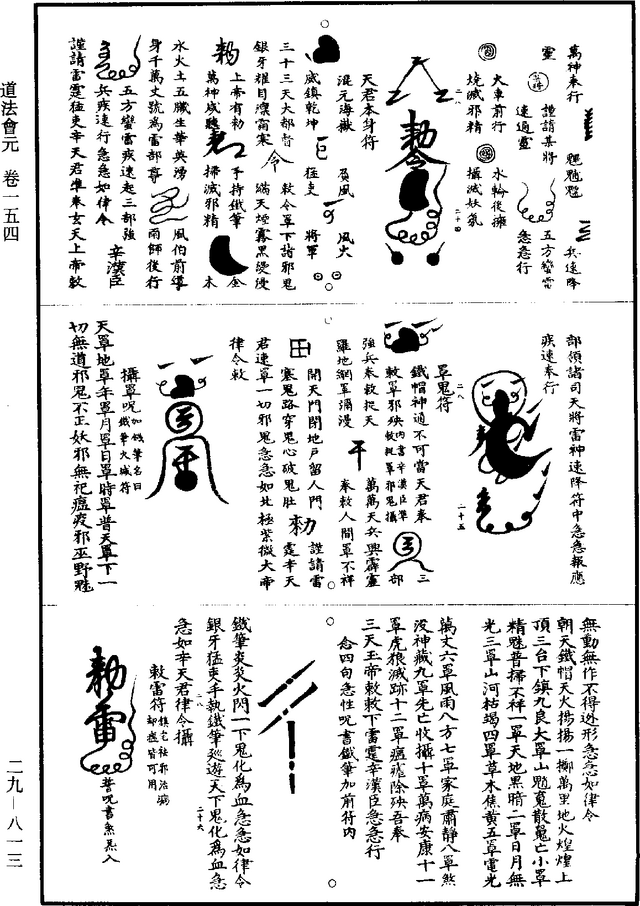 道法會元 卷一五四
萬神奉行
魁䰢魓
兵速降
靈
謹請某將
速過靈
五方蠻雷
急急行
火車前行
燒滅邪精
水輪後擁
攝滅妖氛
勅令
天君本身符
混元海嶽
威鎮乾坤
猛吏
負風
將軍
風火
三十三天大都督
銀牙耀目凛霜寒
令
敕令罩下諸邪鬼
滿天煙霧黑漫漫
勅
上帝有勅
萬神咸聽
手持鐵筆
掃滅邪精
金
木
水火土五臟生華英湧
身千萬丈號為雷部尊
風伯前導
雨師後行
五方蠻雷疾速起三部強
兵疾速行急急如律令
辛漢臣
謹請雷霆猛吏辛天君準奉玄天上帝敕
部領諸司天將雷神速降符中急急報應
疾速奉行
二十五
罩鬼符
鐵帽神通不可當天君奉
敕罩邪殃
三
部
強兵奉敕從天
羅地網罩彌漫
萬萬天兵興霹靂
奉敕人間罩不祥
田
開天門閉地户留人門
塞鬼路穿鬼心破鬼肚
勅
謹請雷
霆辛天
君速罩一切邪鬼急急如北極紫微大帝
律令敕
攝罩呪
天罩地罩年罩月罩日罩時罩普天罩下一
切無道邪鬼不正妖邪無祀瘟疫邪巫野魅
無動無作不得遁形急急如律令
朝天鐵帽天火揚揚一擲萬里地火煌煌上
頂三台下鎮九良大罩山魈鬼散鬼亡小罩
精魅普掃不祥一罩天地黑暗二罩日月無
光三罩山河枯竭四罩草木焦黄五罩電光
萬丈六罩風雨八方七罩家庭肅静八罩煞
没神藏九罩先亡收攝十罩萬病安康十一
罩虎狼滅跡十二罩瘟𤺊除殃吾奉
三天玉帝敕敕下雷霆辛漢臣急急行
念四句急性呪書鐵筆加前符内
鐵筆炎炎火閃一下鬼化為血急急如律令
銀牙猛吏手執鐵筆巡遊天下鬼化為血急
急如辛天君律令攝
敕雷符
二十六
勅雷
二九—八一三